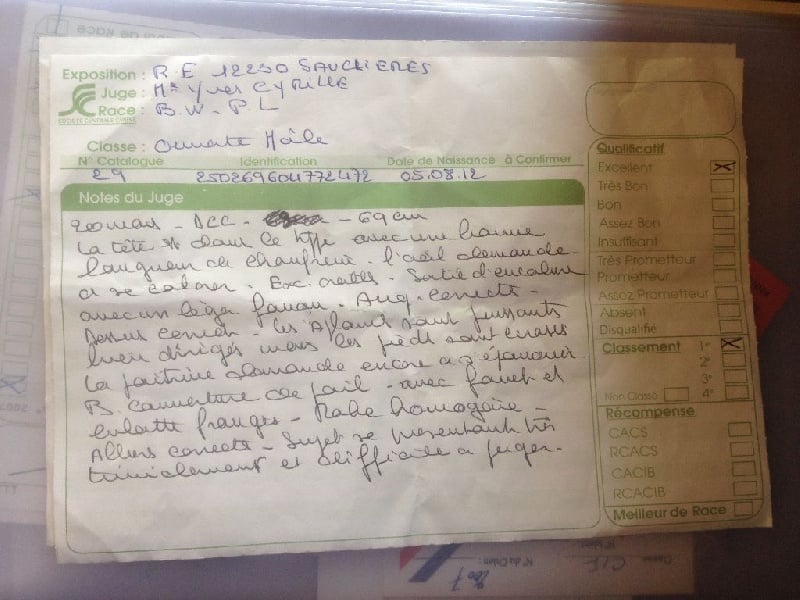 Exposition : R.E 12230 SAUCLIERES
Juge : Mr Yves CYRILLE
Race : B.W. P L
SOCIETE CENTRALE CANINE
Classe : Ouverte Mâle
N° Catalogue Identification Date de Naissance à Confirmer
29 250269604772472 05.08.12
Notes du Juge
20 mois - DCC - - 69 cm
La tête est dans le type avec une bonne
longueur de chanfrein. l'oeil demande
a se colorer. Exc. oreilles. Sortie d'encolure
avec un léger fanon. Ang. corrects -
Dessus correct - les Aplombs sont puissants
bien dirigés mais les pieds sont écrasés
La poitrine demande encore a s'épanouir
B. couverture de poil - avec fouet et
culotte frangés - Robe homogène -
Allures corrects - Sujet se présentant très
timidement et difficile a juger.
Qualificatif
Excellent X
Très Bon
Bon
Assez Bon
Insuffisant
Très Prometteur
Prometteur
Assez Prometteur
Absent
Disqualifié
Classement 1er X
2e
3e
Non Classé 4e
Récompense
CACS
RCACS
CACIB
RCACIB
Meilleur de Race